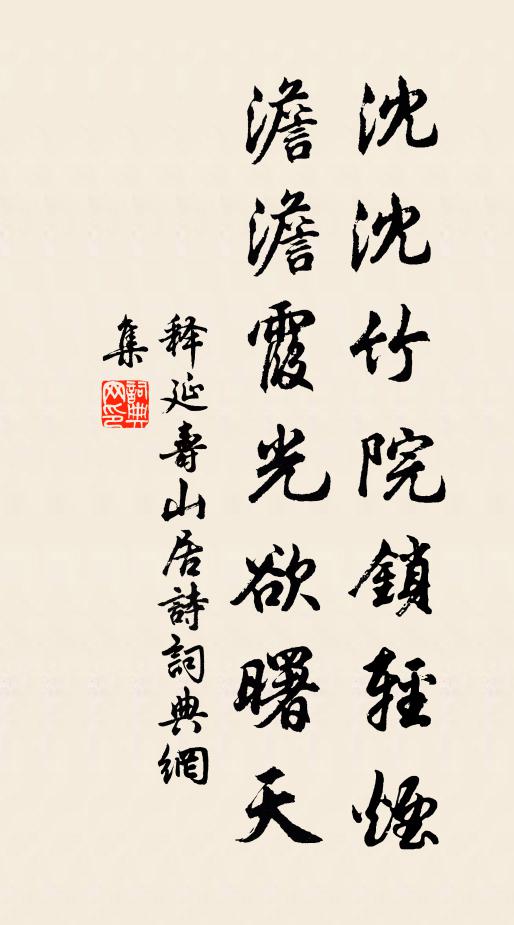 沈沈竹院鎖輕煙
澹澹霞光欲曙天
釋延壽山居詩詞典網
集
詞典
网印